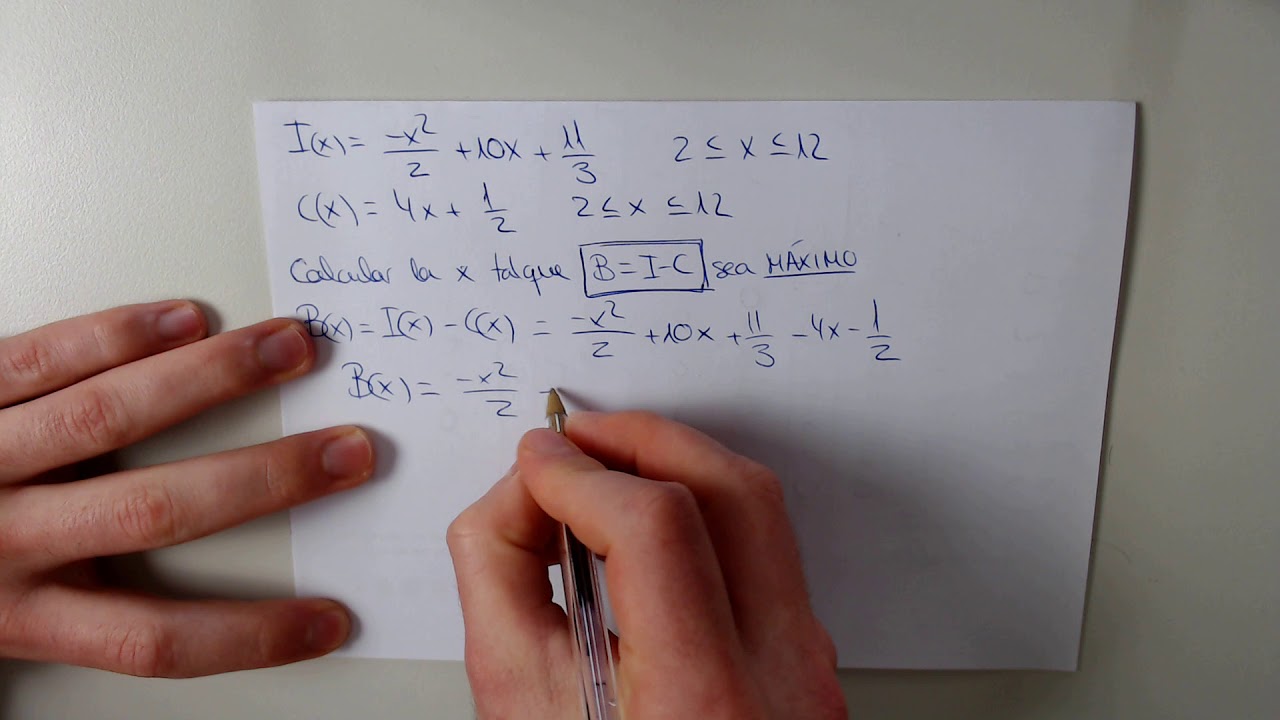 I(x) = -x²/2 + 10x + 11/3    2 ≤ x ≤ 12
C(x) = 4x + 1/2    2 ≤ x ≤ 12
Calcular la x tal que B = I - C sea MÁXIMO
B(x) = I(x) - C(x) = -x²/2 + 10x + 11/3 - 4x - 1/2
B(x) = -x²/2 -